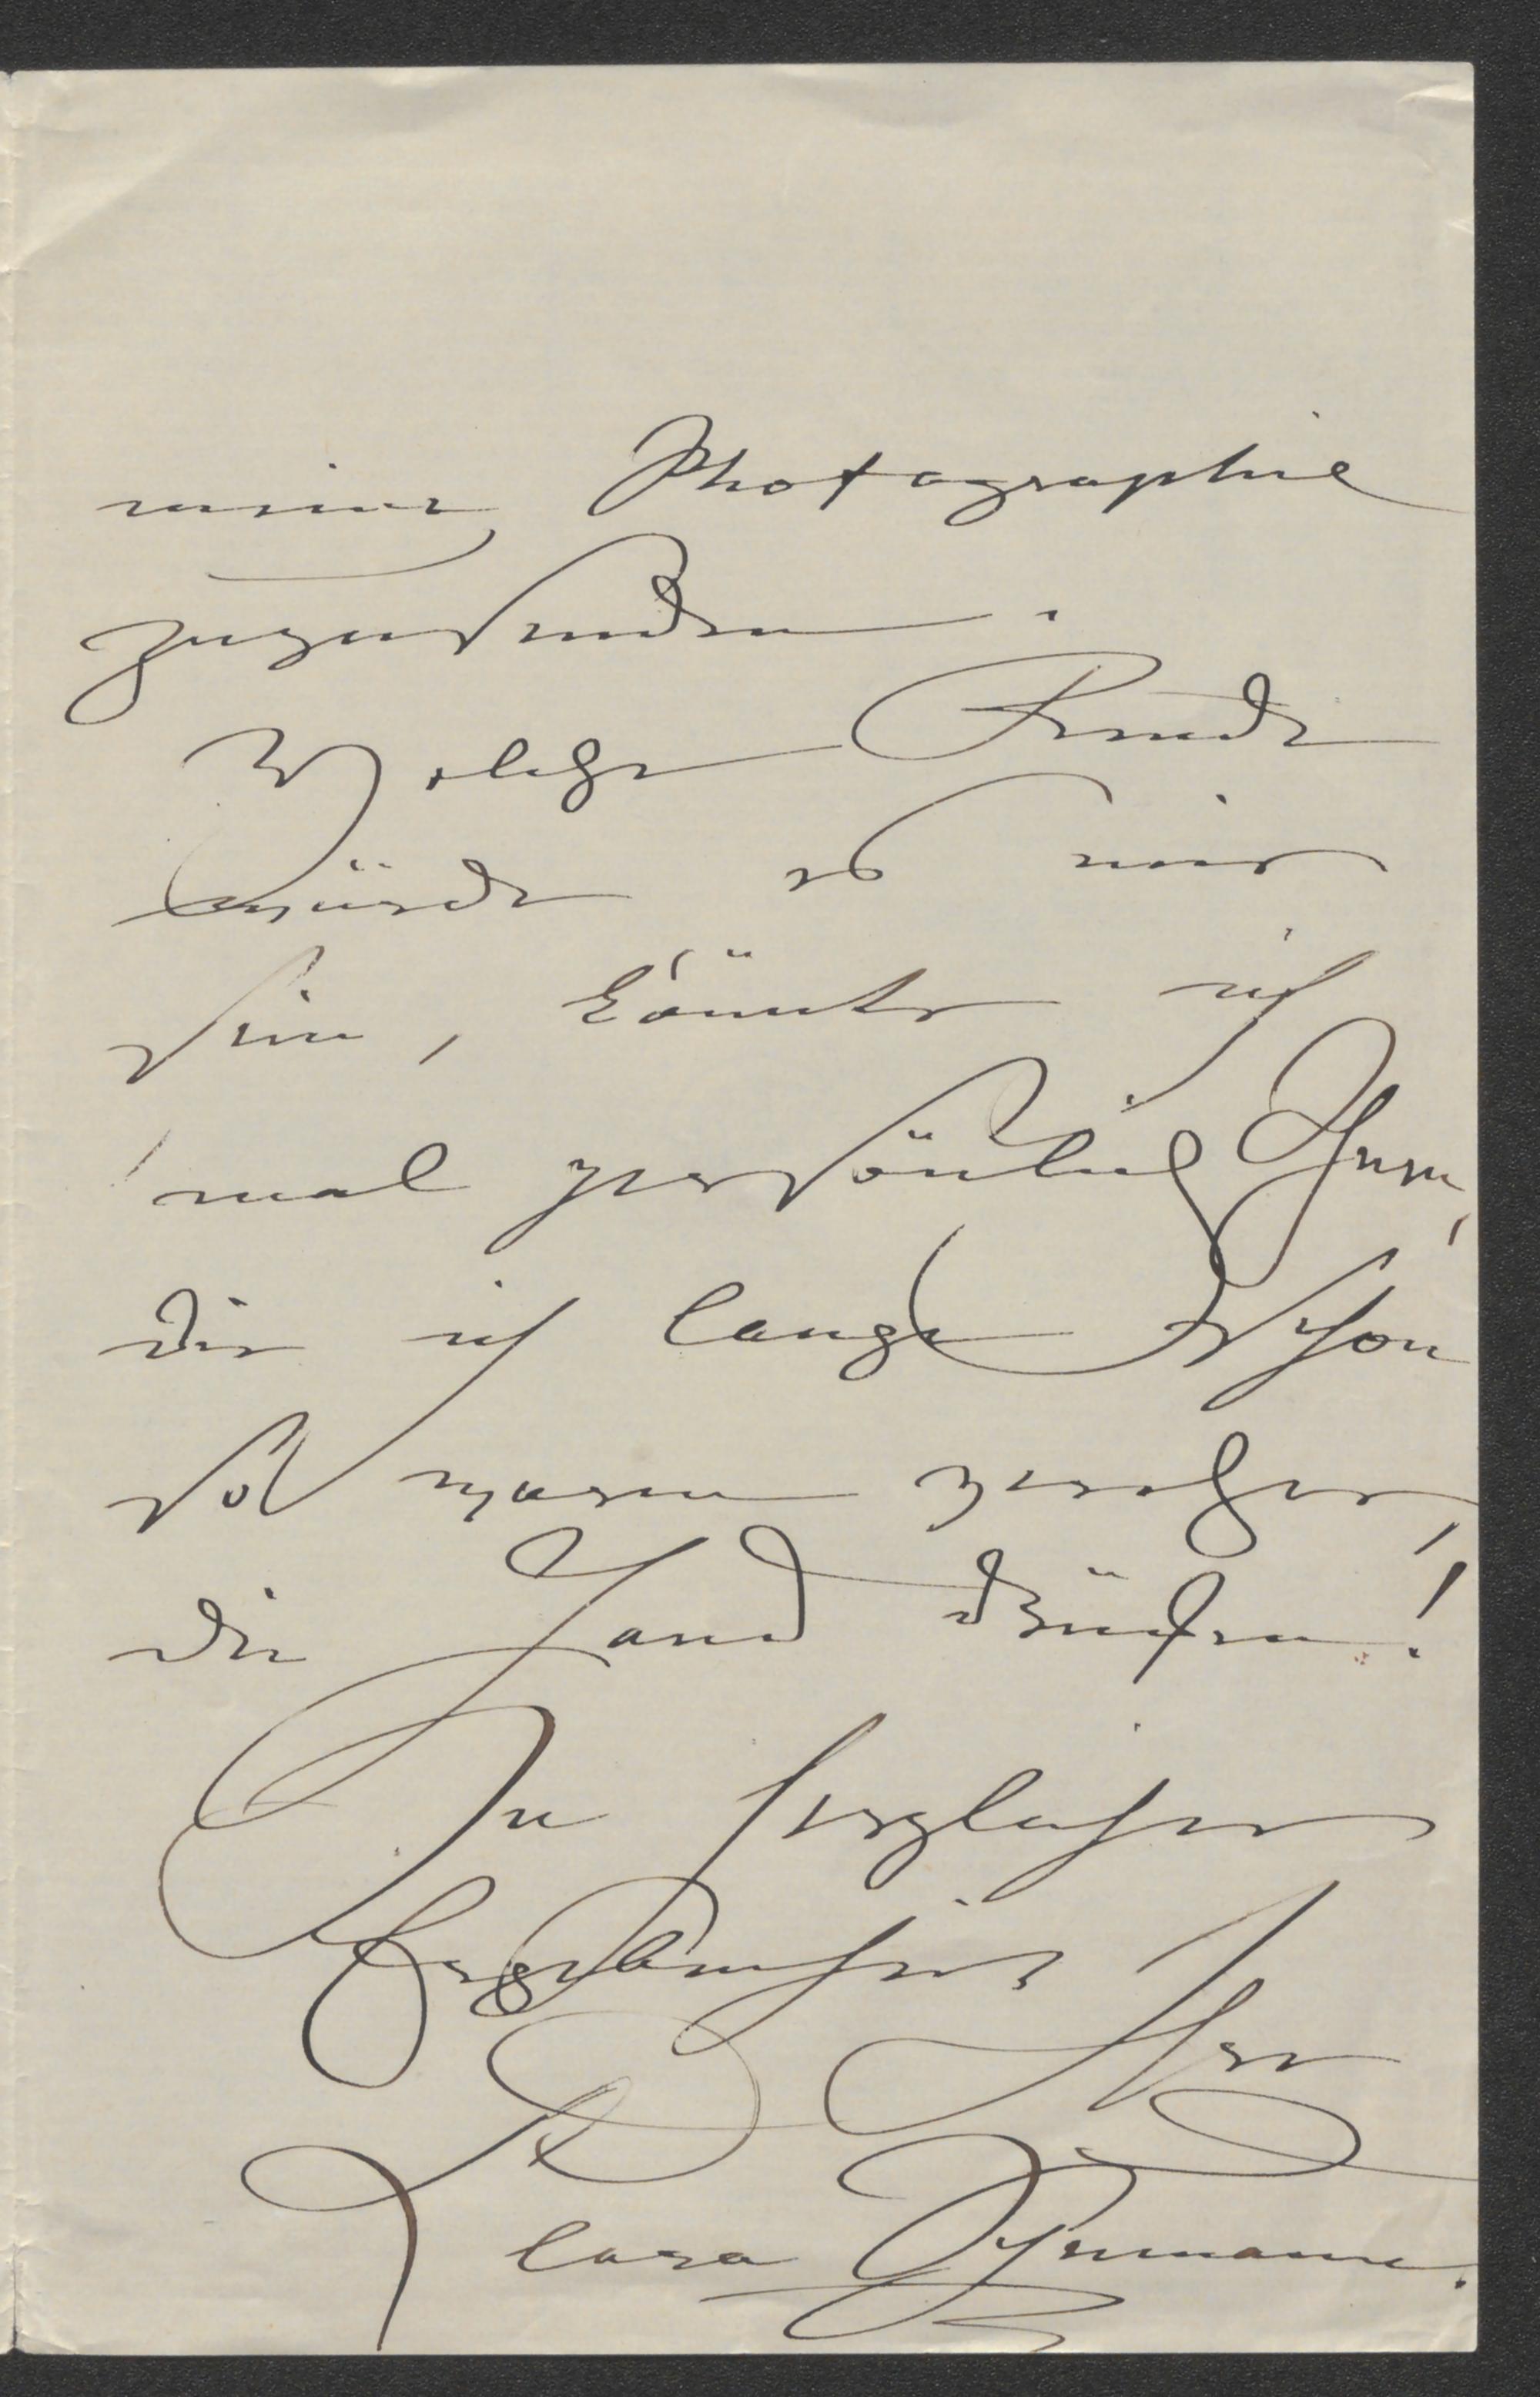 meine Photographie
zuzusenden.
Welche Freude
würde es mir
sein, könnte ich
'mal persönlich Ihnen,
die ich lange schon
so warm verehre,
die Hand drücken!
In herzlicher
Ergebenheit
Ihre
Clara Schumann.